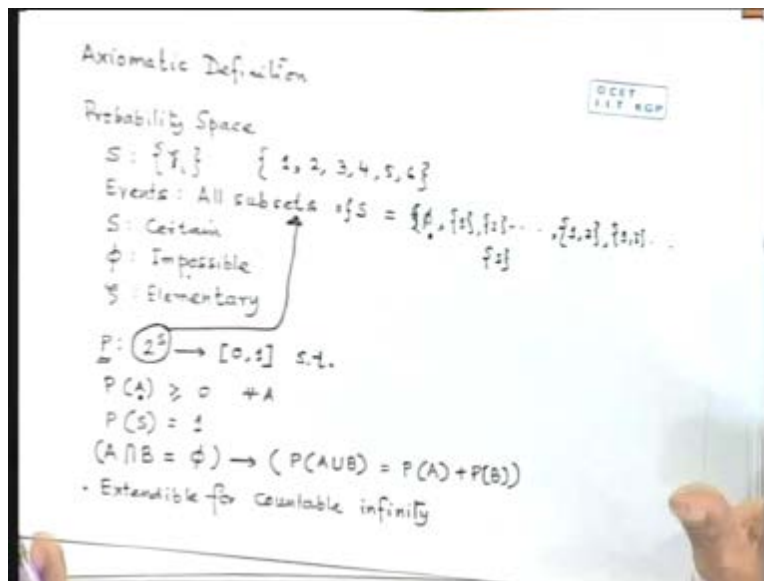 Axiomatic Definition
OCET
I.I.T KGP
Probability Space
S : {ξi} { 1, 2, 3, 4, 5, 6}
Events : All subsets of S = {ϕ, {1}, {2} - - - , {1,2}, {1,3} - - -
{S}
S : Certain
ϕ : Impossible
ξ : Elementary
P : 2^S → [0,1] s.t.
P(A) ≥ 0 ∀A
P(S) = 1
(A ∩ B = ϕ) → ( P(A∪B) = P(A) + P(B))
. Extendible for countable infinity